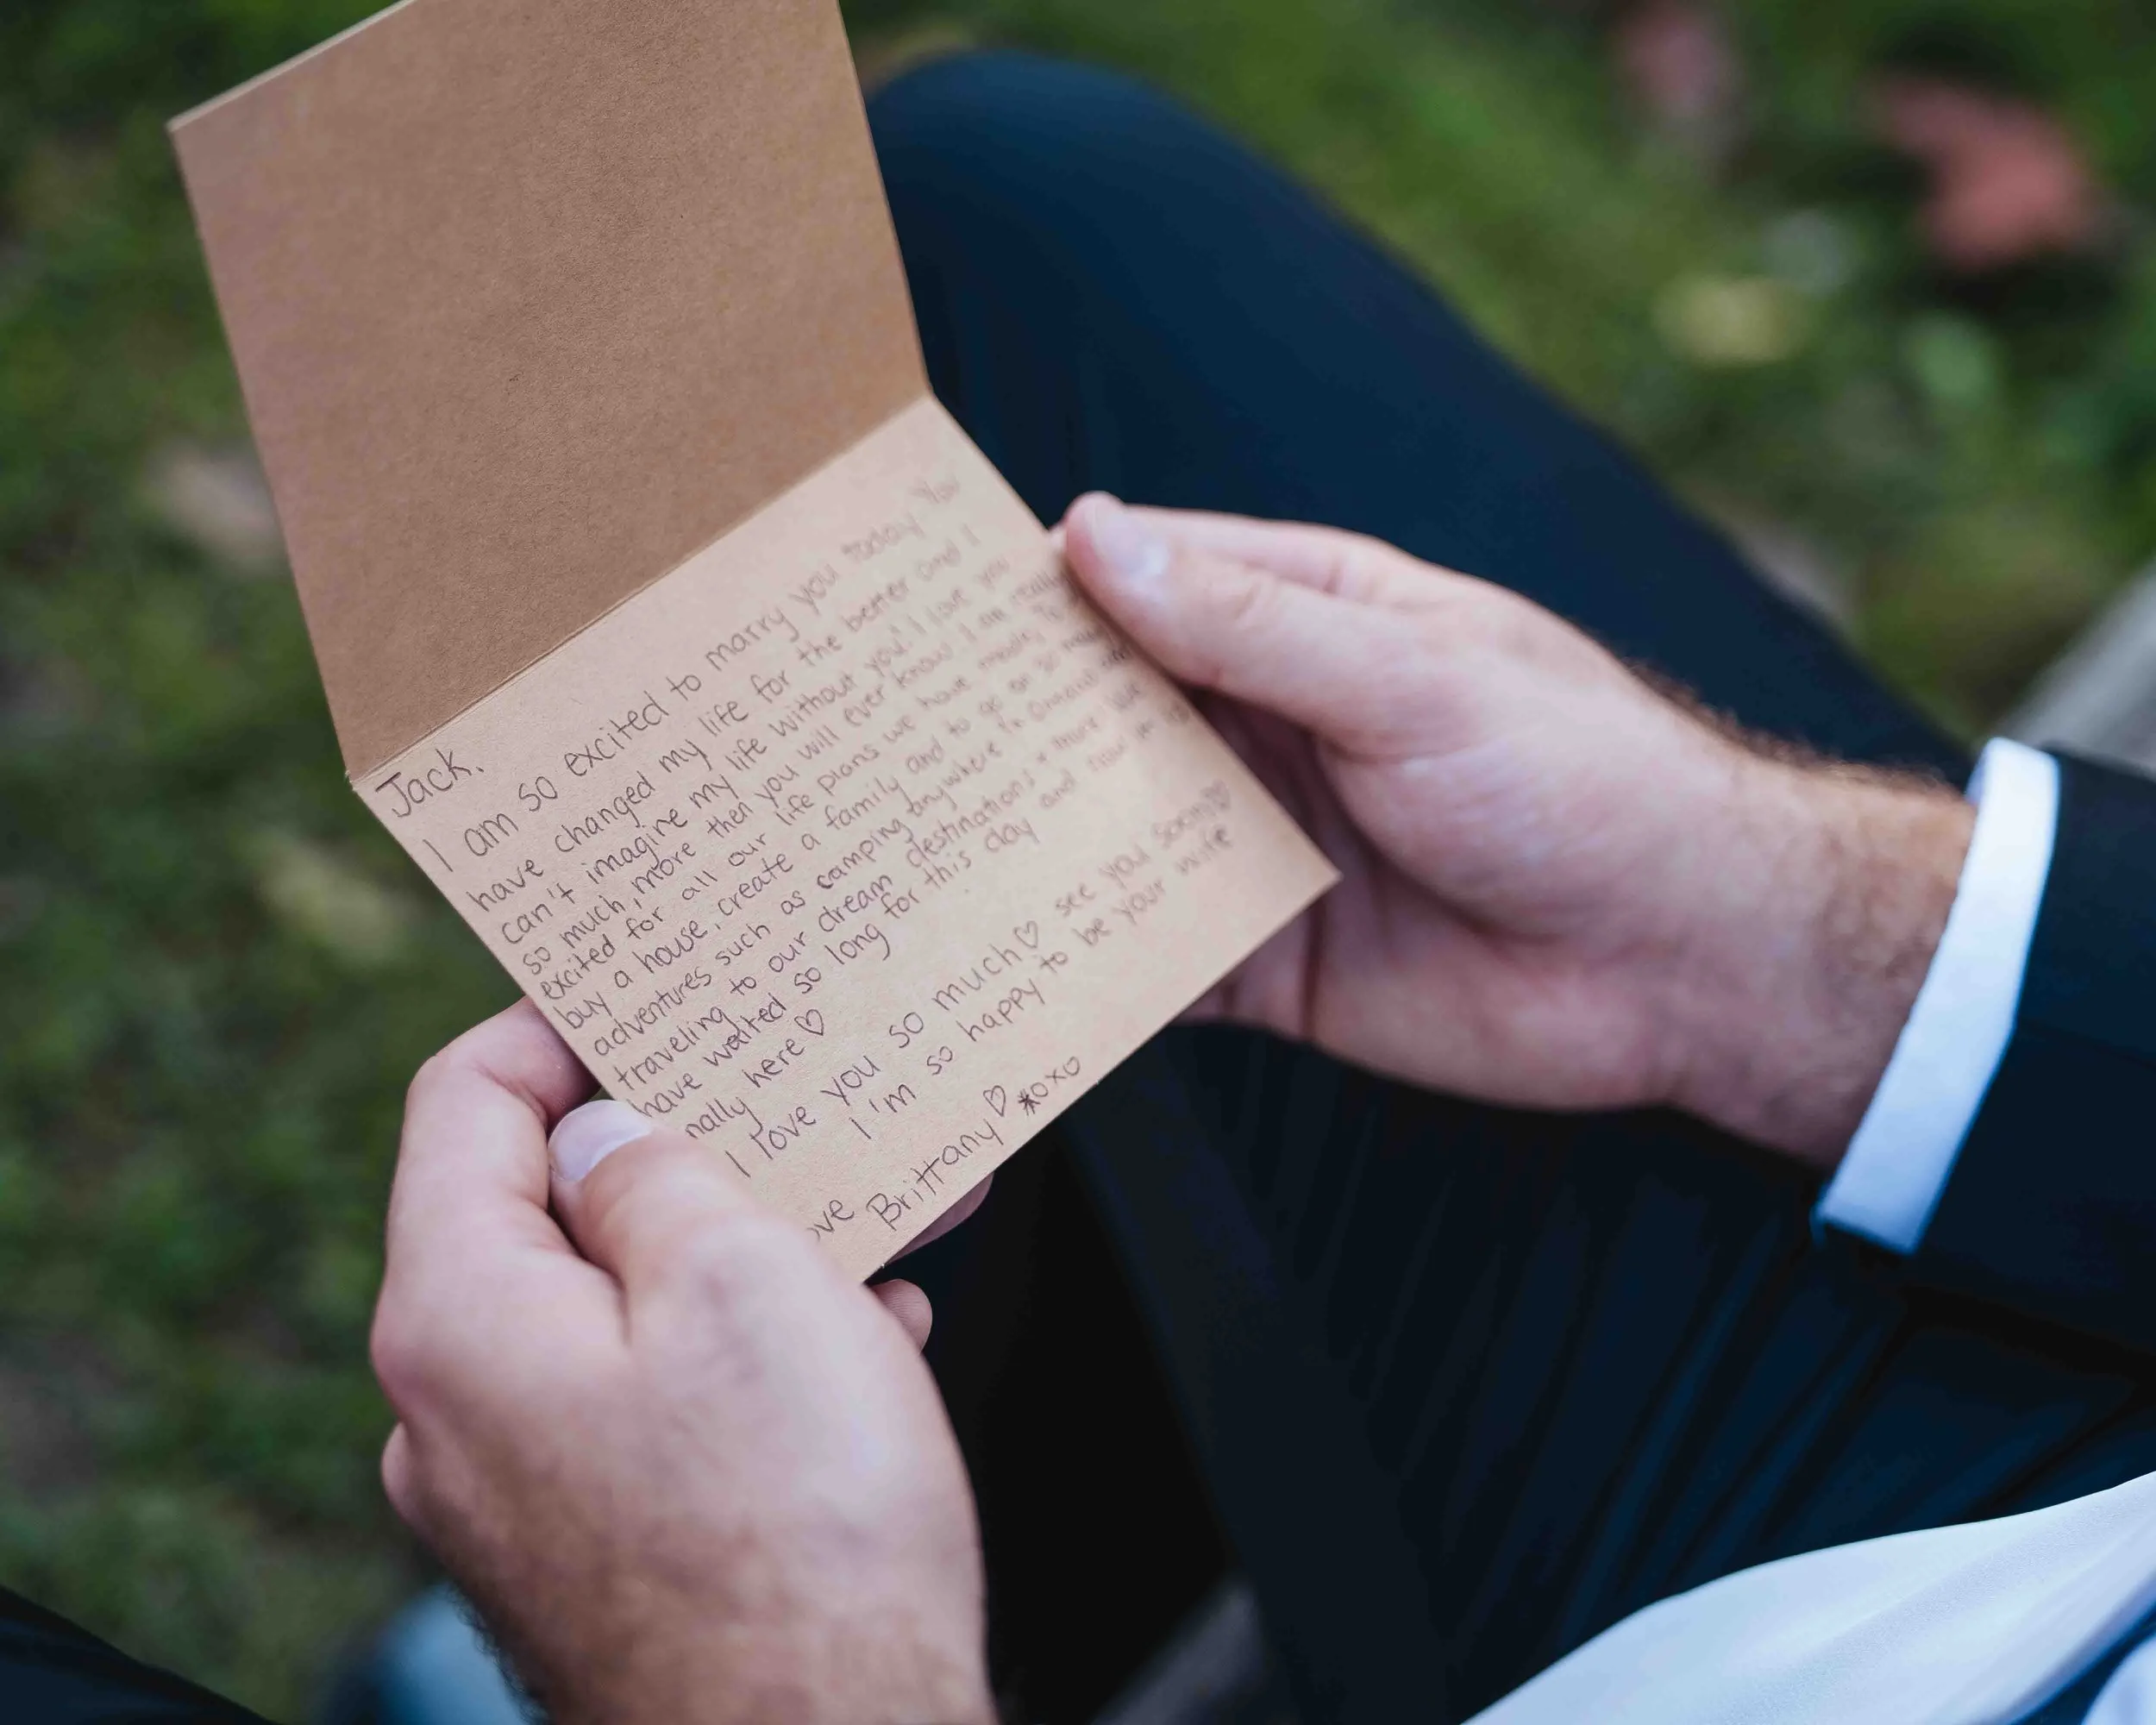 Jack,
I am so excited to marry you today You
have changed my life for the better and I
can't imagine my life without you! I love you
so much, more then you will ever know! I am really
excited for all our life plans we have made, To
buy a house, create a family and to go on so many
adventures such as camping anywhere in
traveling to our dream destinations + more We
have waited so long for this day and now it
nally here ♡
I love you so much ♡ see you soon ♡
I'm so happy to be your wife
ove Brittany ♡ xoxo